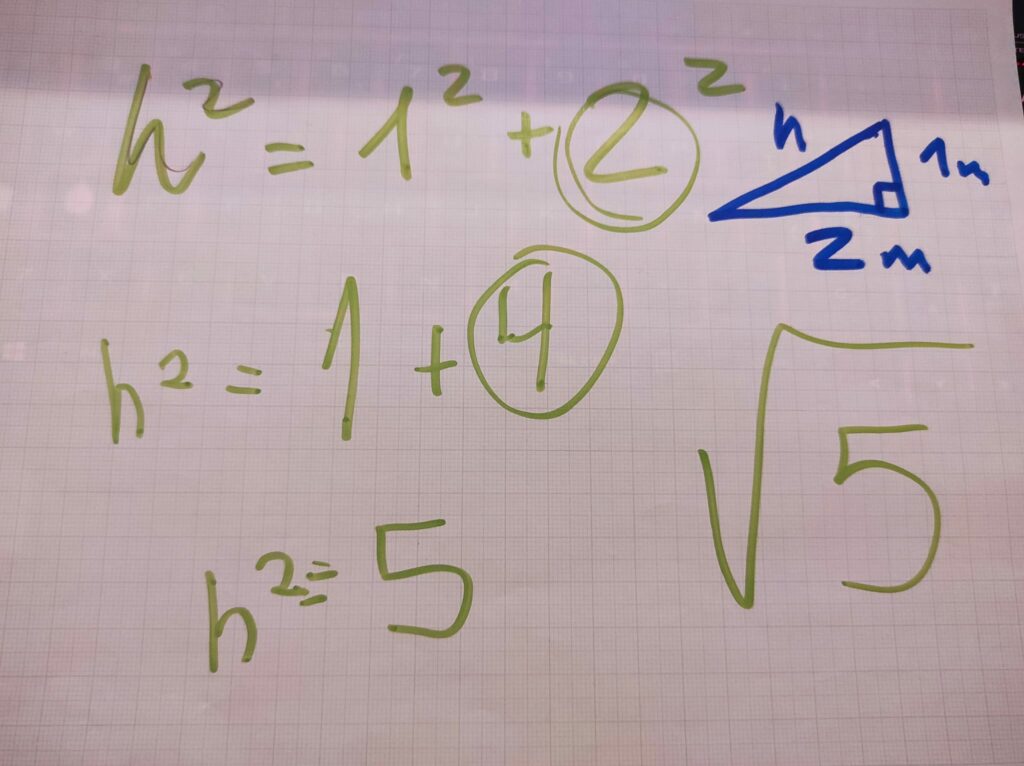 h² = 1² + 2²
h
1m
2m
h² = 1 + 4
√5
h² = 5